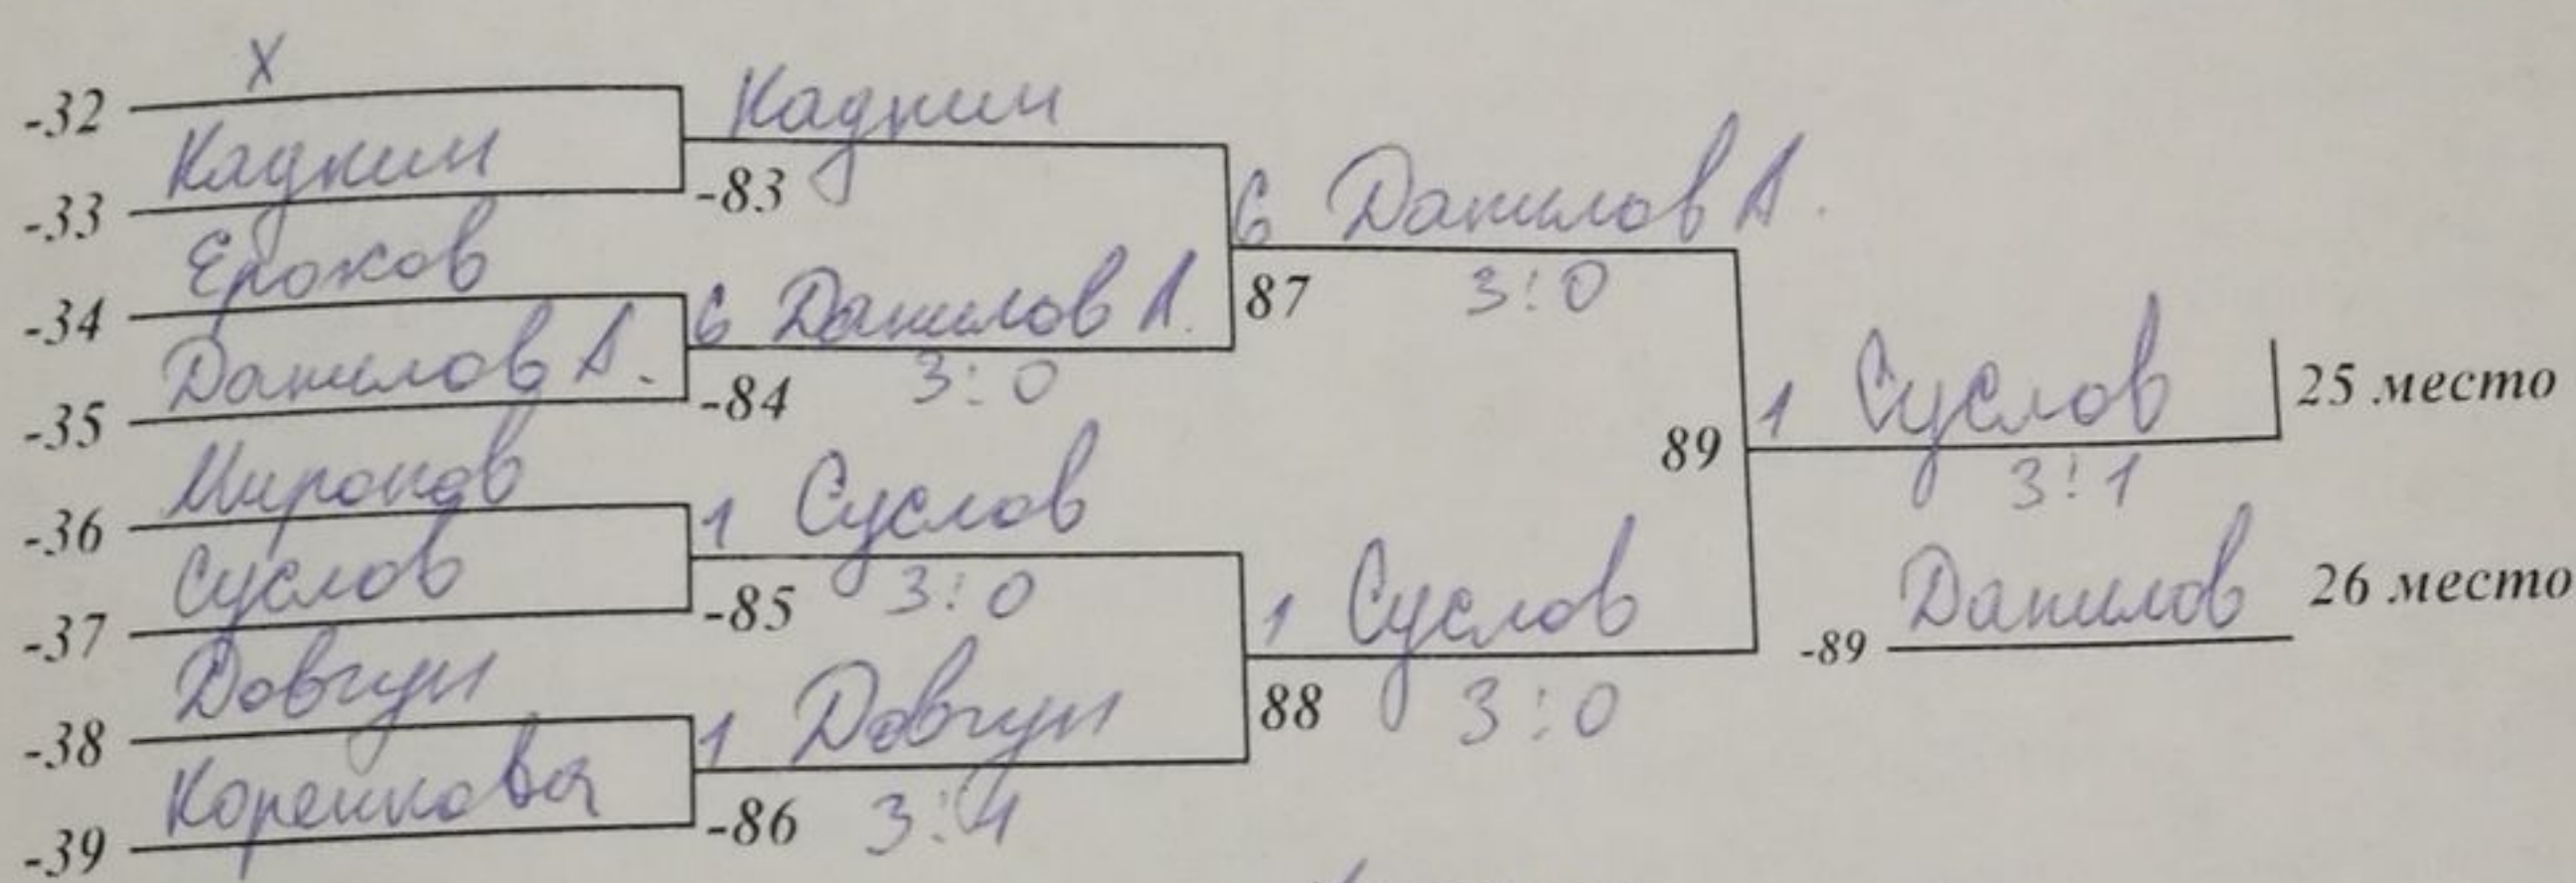 х
-32
Кадкин
-33
Ерохов
-34
Данилов А.
-35
Миронов
-36
Суслов
-37
Довгун
-38
Коренкова
-39
Кадкин
-83
6 Данилов А.
-84 3:0
1 Суслов
-85 3:0
1 Довгун
-86 3:1
6 Данилов А.
87 3:0
1 Суслов
88 3:0
89
1 Суслов 25 место
3:1
-89 Данилов 26 место